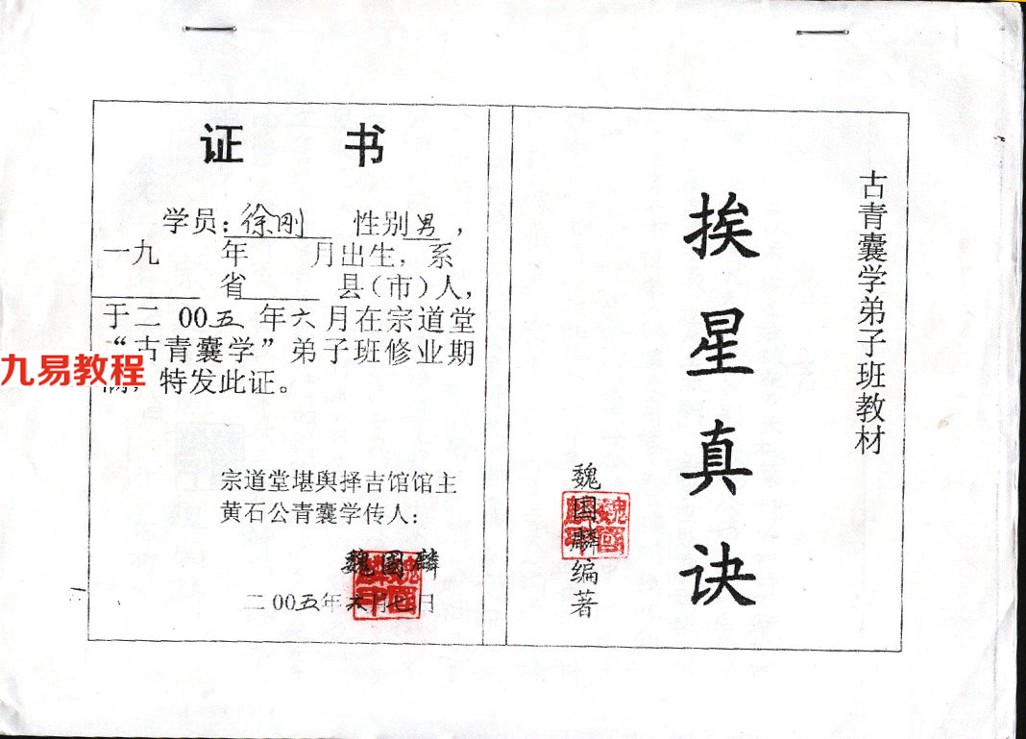 证 书
学员：徐刚 性别男，
一九 年 月出生，系
省 县（市）人，
于二00五年六月在宗道堂
“古青囊学”弟子班修业期
满，特发此证。
宗道堂堪舆择吉馆馆主
黄石公青囊学传人：
魏國麟
二00五年六月七日
九易教程
古青囊学弟子班教材
挨星真诀
魏国麟编著